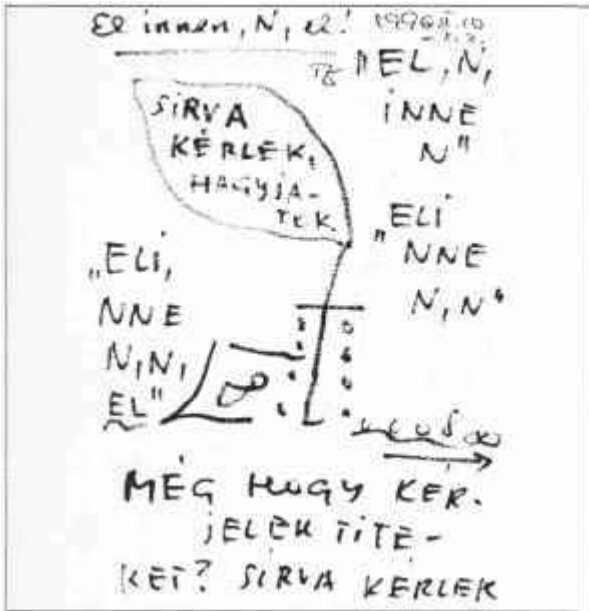 El innen, N, el!
"EL, N,
INNE
N"
SÍRVA
KÉRLEK,
HAGYJA-
TEK.
"ELI
NNE
N, N"
„ELI,
NNE
N, N,
EL"
MÉG HOGY KÉR-
JELEK TITE-
KET? SÍRVA KÉRLEK